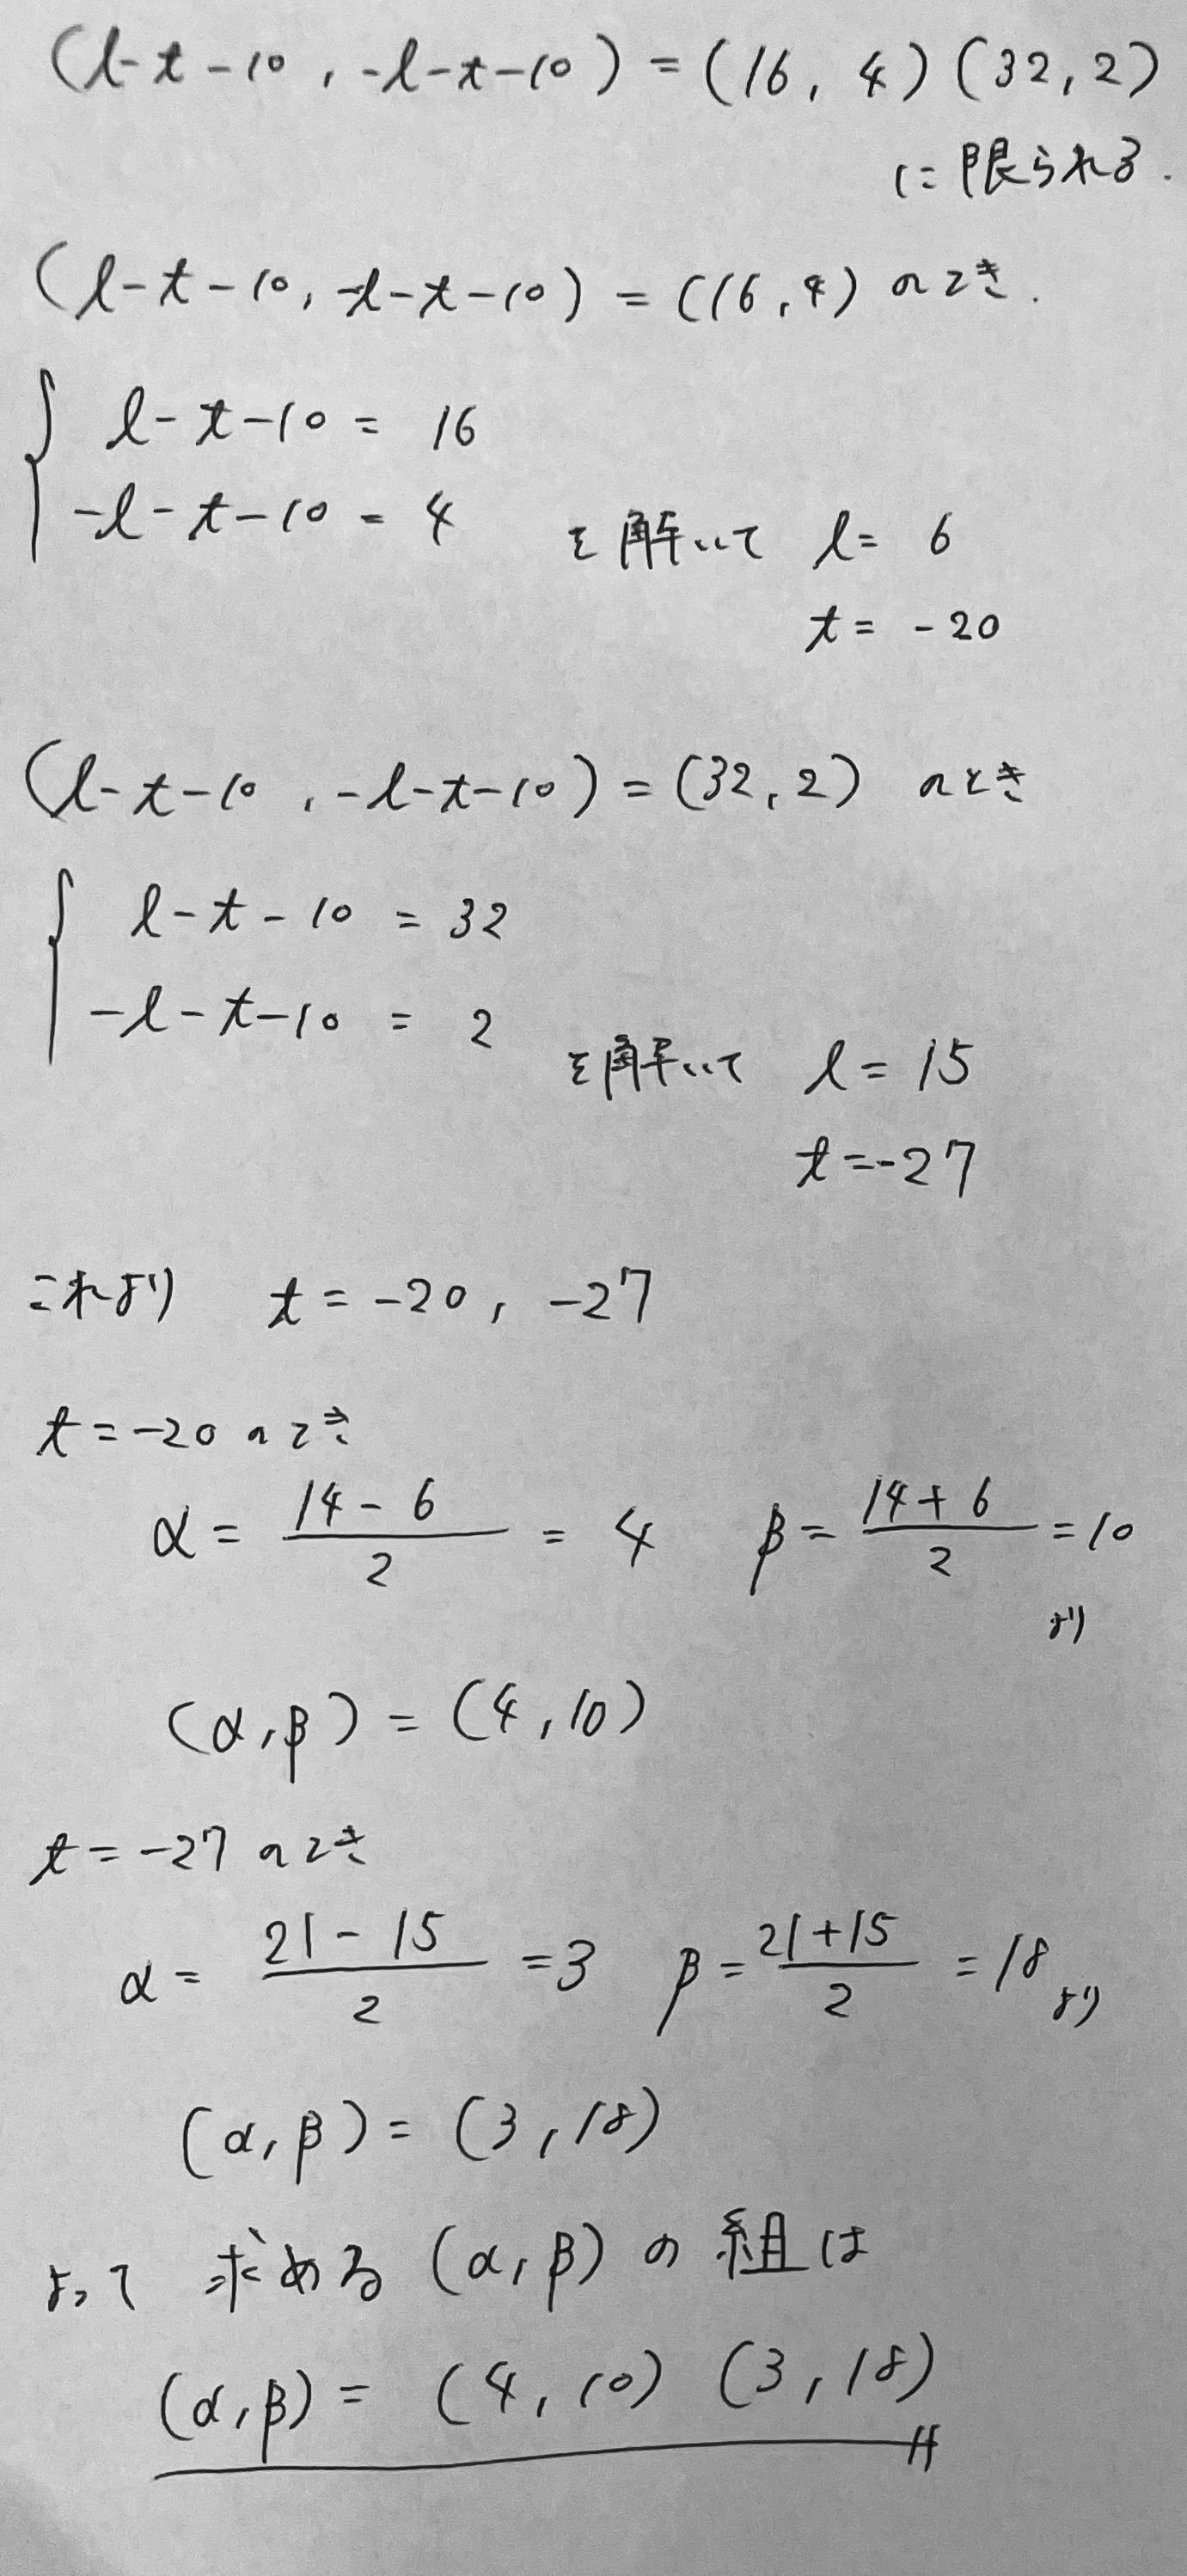 (l-t-10, -l-t-10) = (16, 4) (32, 2)
に限られる.
(l-t-10, -l-t-10) = (16, 4) のとき.
l-t-10 = 16
-l-t-10 = 4 を解いて l = 6
t = -20
(l-t-10, -l-t-10) = (32, 2) のとき
l-t-10 = 32
-l-t-10 = 2 を解いて l = 15
t = -27
これより t = -20, -27
t = -20 のとき
α = \frac{14-6}{2} = 4 β = \frac{14+6}{2} = 10
より
(α, β) = (4, 10)
t = -27 のとき
α = \frac{21-15}{2} = 3 β = \frac{21+15}{2} = 18 より
(α, β) = (3, 18)
よって 求める (α, β) の組は
(α, β) = (4, 10) (3, 18)